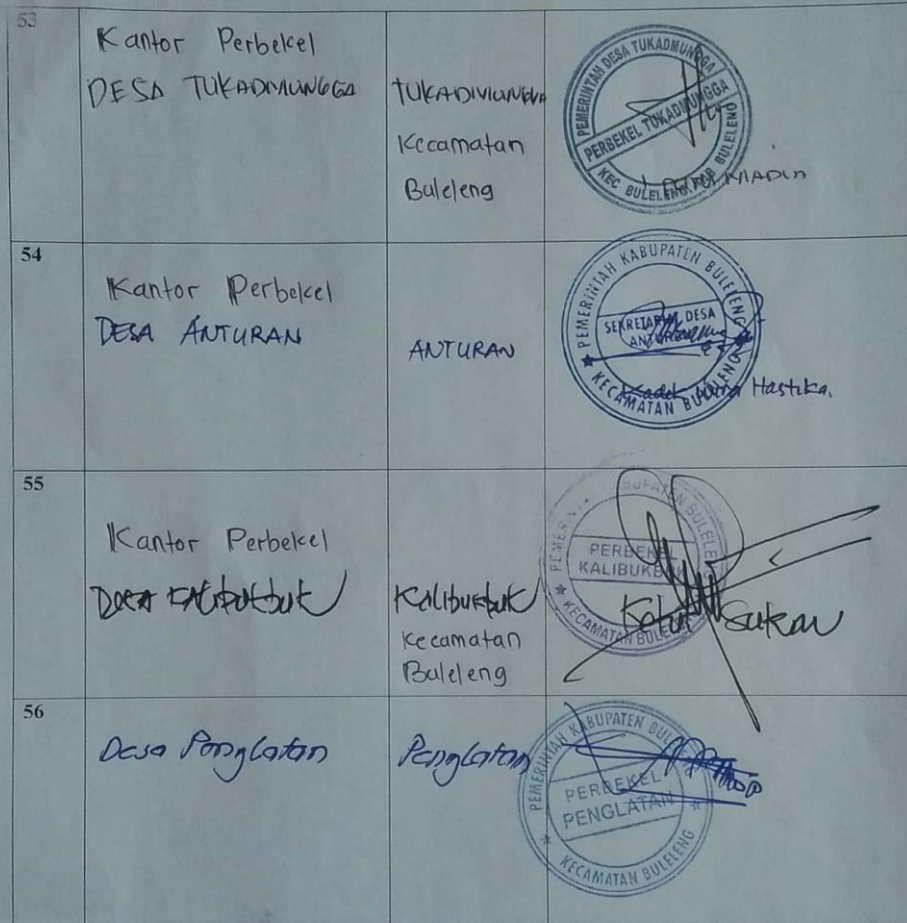 53
Kantor Perbekel
DESA TUKADMUNGGA
TUKADMUNGGA
Kecamatan
Buleleng
PEMERINTAH DESA TUKADMUNGGA
PERBEKEL TUKADMUNGGA
KEC BULELENG KAB BULELENG
MADIA
54
Kantor Perbekel
DESA ANTURAN
ANTURAN
PEMERINTAH KABUPATEN BULELENG
SEKRETARIS DESA
ANTURAN
KECAMATAN BULELENG
Kadek Hastika.
55
Kantor Perbekel
DESA Kalibukbuk
Kalibukbuk
Kecamatan
Buleleng
PEMERINTAH KABUPATEN BULELENG
PERBEKEL
KALIBUKBUK
KECAMATAN BULELENG
Ketut Suka
56
Desa Penglatan
Penglatan
PEMERINTAH KABUPATEN BULELENG
PERBEKEL
PENGLATAN
KECAMATAN BULELENG